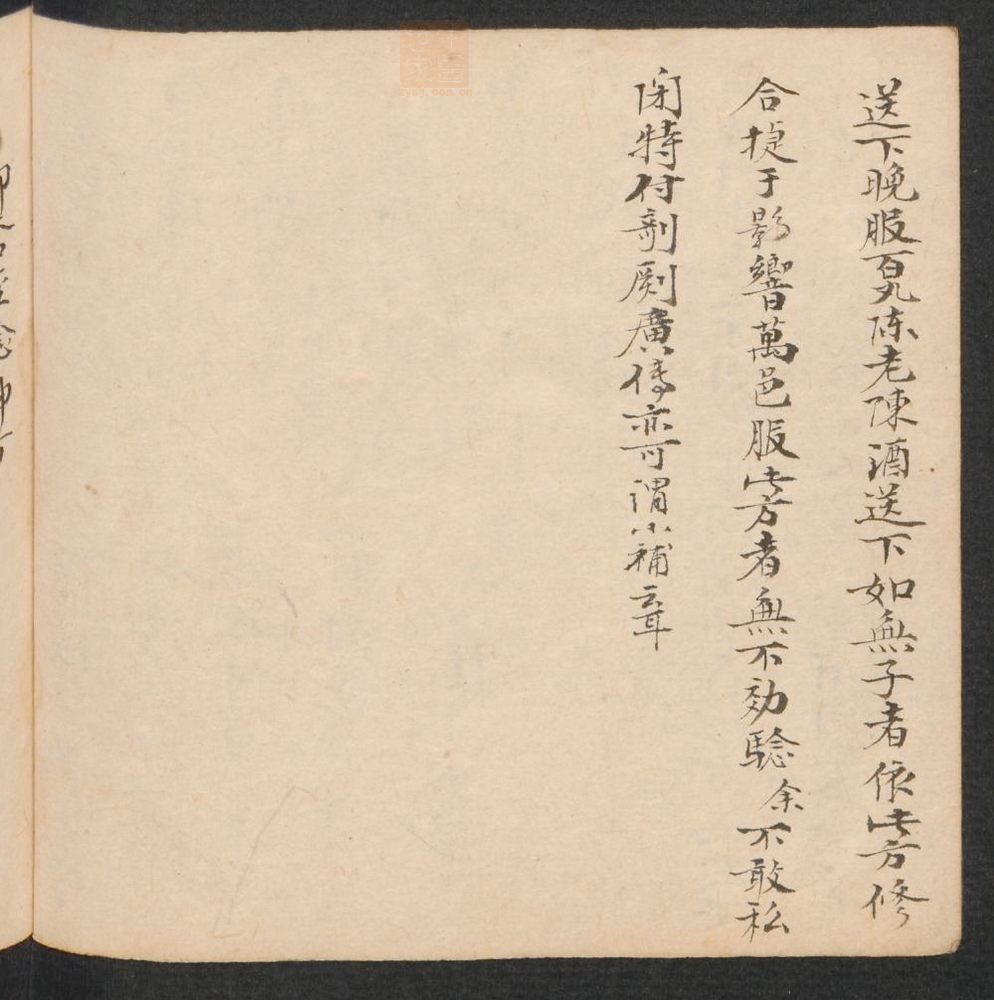 送下晚服百丸陈老陳酒送下如無子者依此方修
合捷于影響萬邑服此方者無不効驗余不敢私
閉特付剞劂廣傳亦可謂小補云耳